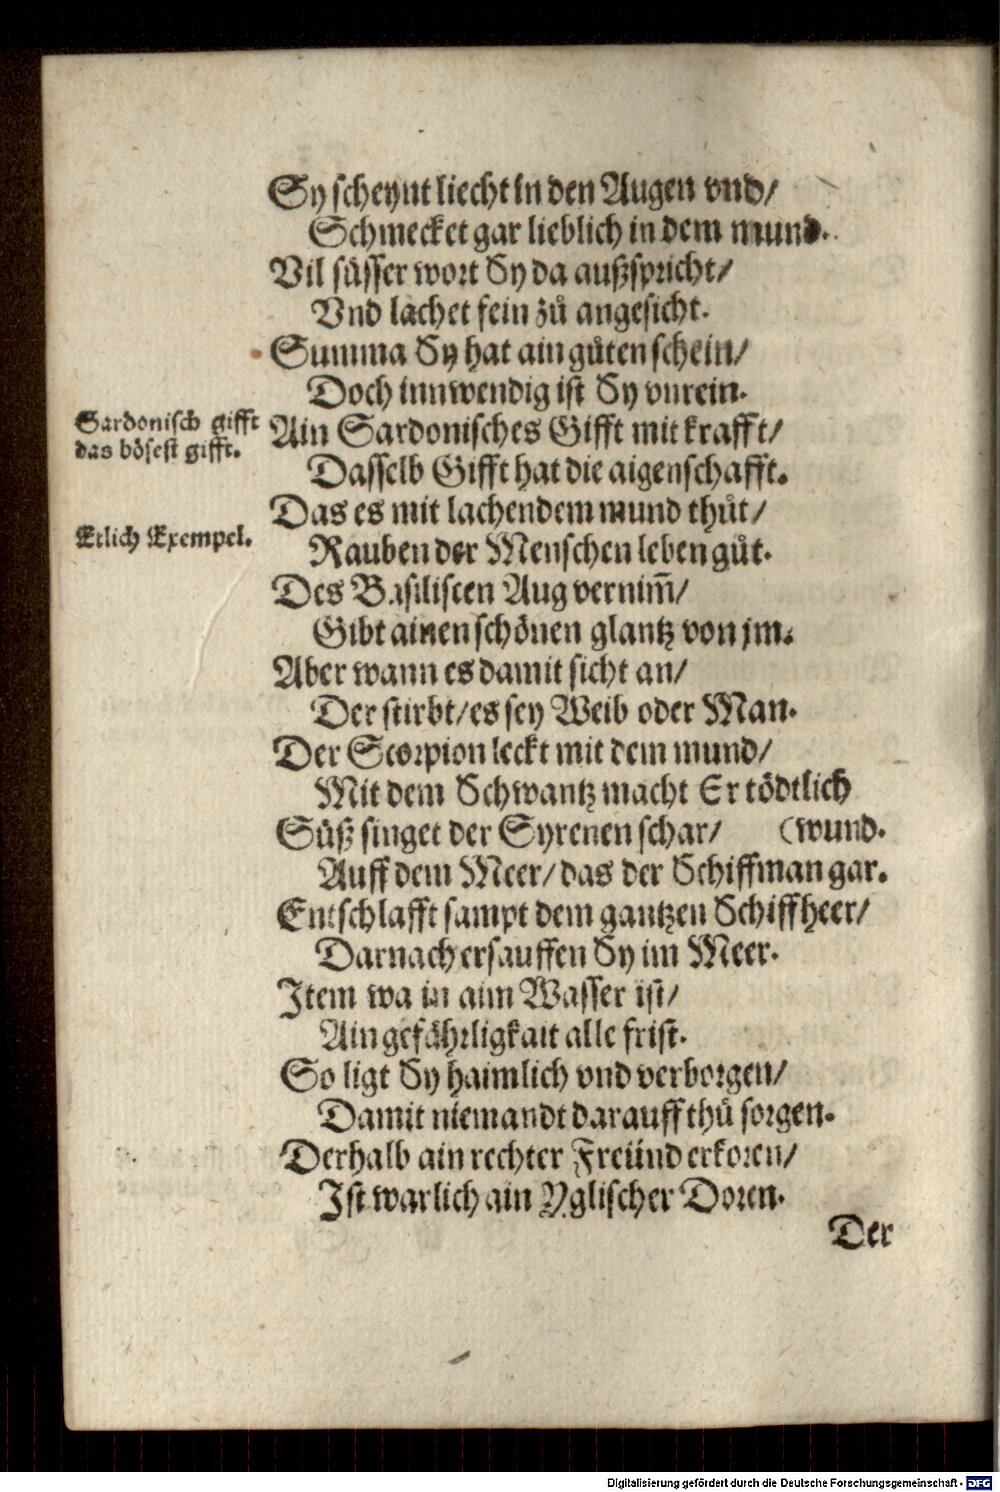 Sy scheynt liecht in den Augen vnd/
Schmecket gar lieblich in dem mund.
Vil süsser wort Sy da außspricht/
Vnd lachet fein zů angesicht.
Summa Sy hat ain gůten schein/
Doch innwendig ist Sy vnrein.
Sardonisch gifft
das bösest gifft.
Ain Sardonisches Gifft mit krafft/
Dasselb Gifft hat die aigenschafft.
Das es mit lachendem mund thůt/
Etlich Exempel.
Rauben der Menschen leben gůt.
Des Basiliscen Aug vernim̃/
Gibt ainen schönen glantz von jm.
Aber wann es damit sicht an/
Der stirbt/es sey Weib oder Man.
Der Scorpion leckt mit dem mund/
Mit dem Schwantz macht Er tödtlich
Süß singet der Syrenen schar/ (wund.
Auff dem Meer/das der Schiffman gar.
Entschlafft sampt dem gantzen Schiffheer/
Darnach ersauffen Sy im Meer.
Item wa in aim Wasser ist/
Ain gefährligkait alle frist.
So ligt Sy haimlich vnd verborgen/
Damit niemandt darauff thů sorgen.
Derhalb ain rechter Freünd erkoren/
Ist warlich ain Yglischer Doren.
Der
Digitalisierung gefördert durch die Deutsche Forschungsgemeinschaft - DFG